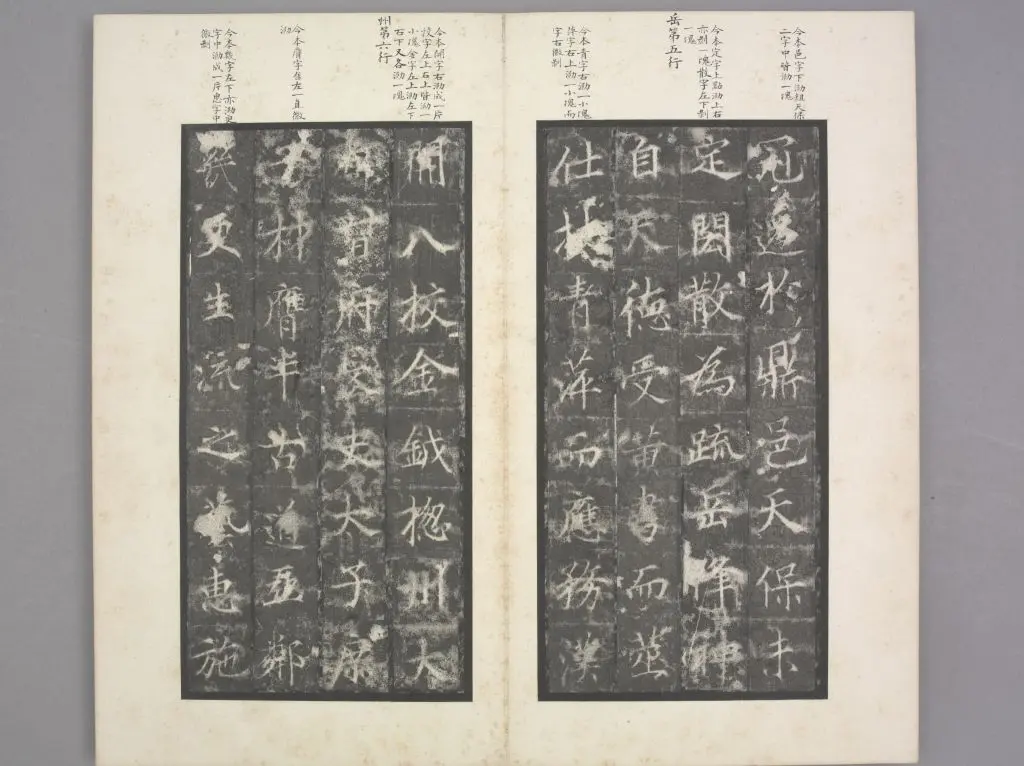 今本邑字下泐粗天保
二字中皆泐一塊
今本定字上點泐上右
亦剝一塊散字左下剝
一塊
岳第五行
今本青字右泐一小塊
萍字右上泐一小塊而
字右微剝
冠於鼎邑天保未
定閎散為疏岳降神
自天德受書而
仕青萍而應務漢
今本開字右泐成一片
校字左上右上皆泐一
小塊金字左上泐左下
右下又各泐一塊
州第六行
今本膺字左一直微
泐
今本幾字左下亦泐更
字中泐成一片惠字中
微剝
開八校金鉞揔州大
府長史太子
膺半古道亞鄰
更生流之藝惠施